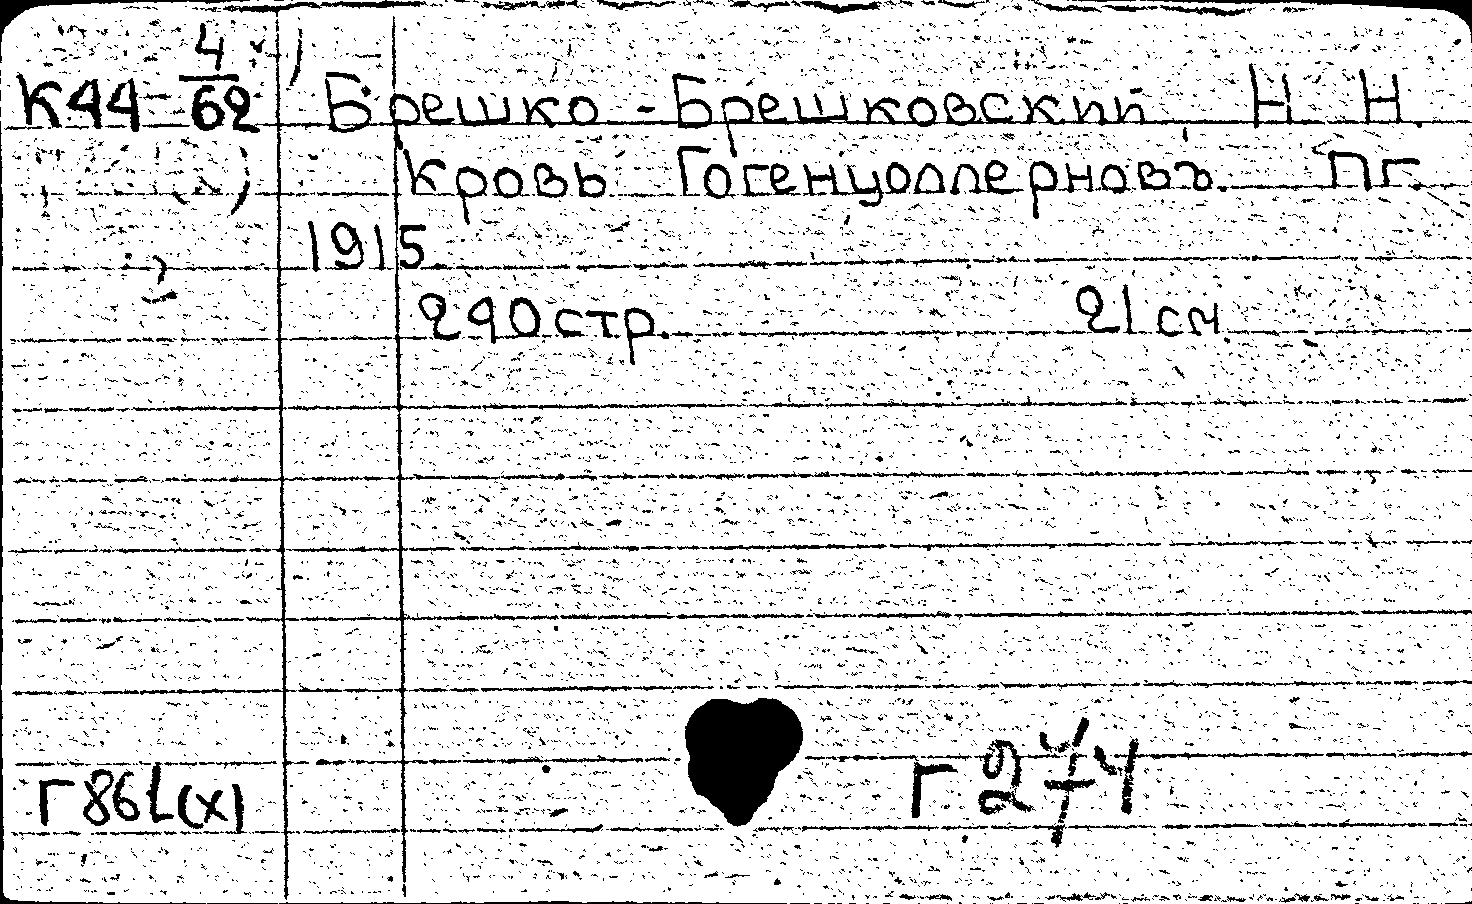 К44 4/62 Брешко-Брешковский Н. Н.
Кровь Гогенцоллерновъ. Пг.
1915
290 стр. 21 см
Г86L(x) Г 274